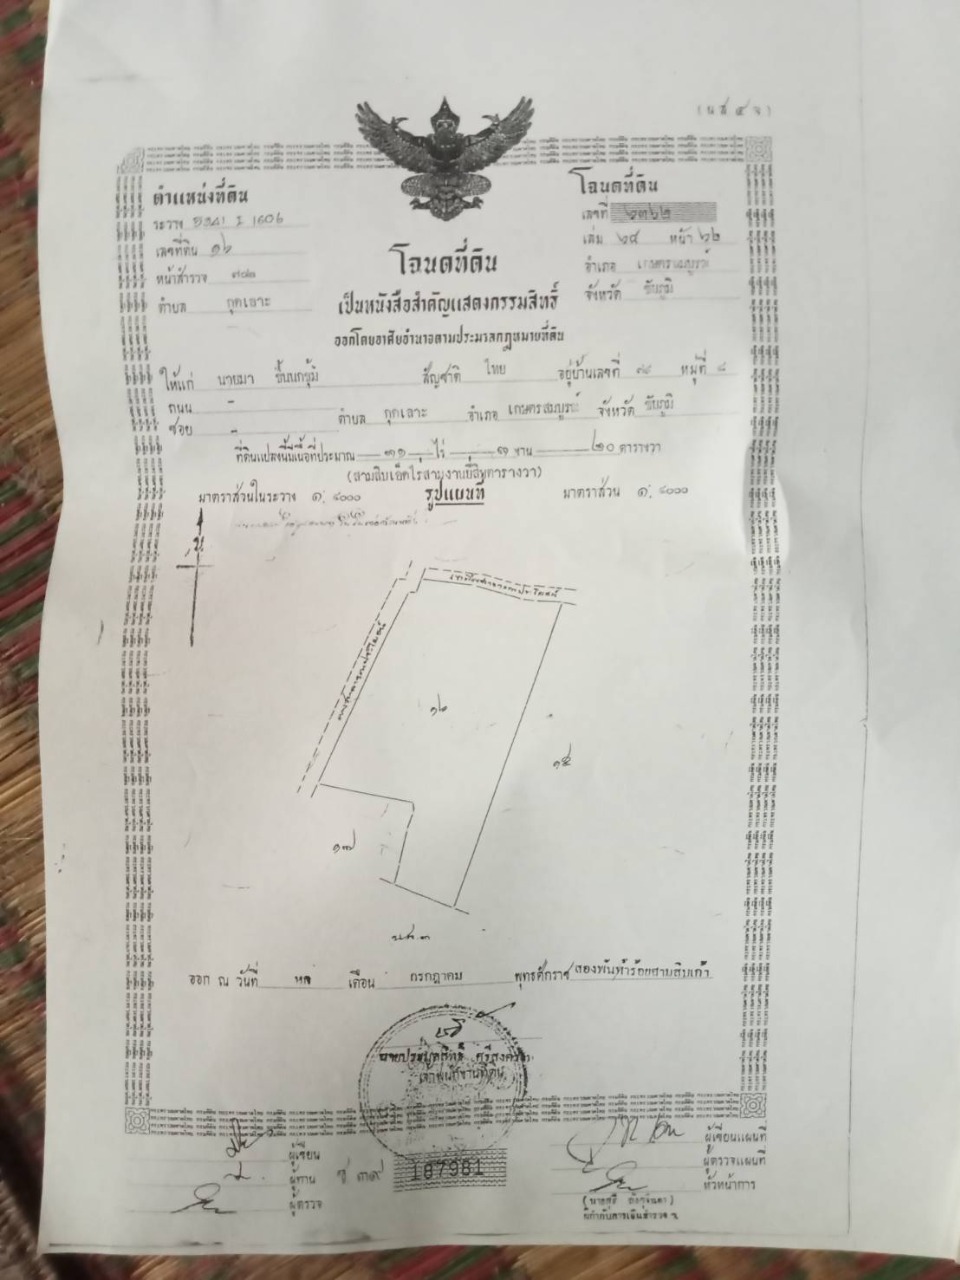 (น ส ๔ จ)
ตำแหน่งที่ดิน
ระวาง 5341 I 1606
เลขที่ดิน ๑๖
หน้าสำรวจ
ตำบล กุดเลาะ
โฉนดที่ดิน
เลขที่ ๖๓๖๒
เล่ม ๖๔ หน้า ๖๒
อำเภอ เกษตรสมบูรณ์
จังหวัด ชัยภูมิ
โฉนดที่ดิน
เป็นหนังสือสำคัญแสดงกรรมสิทธิ์
ออกโดยอาศัยอำนาจตามประมวลกฎหมายที่ดิน
ให้แก่ นายมา สัญชาติ ไทย อยู่บ้านเลขที่ หมู่ที่ ๘
ถนน - ตำบล กุดเลาะ อำเภอ เกษตรสมบูรณ์ จังหวัด ชัยภูมิ
ซอย -
ที่ดินแปลงนี้มีเนื้อที่ประมาณ ๓๑ ไร่ ๓ งาน ๒๐ ตารางวา
(สามสิบเอ็ดไร่สามงานยี่สิบตารางวา)
มาตราส่วนในระวาง ๑: ๔๐๐๐ รูปแผนที่ มาตราส่วน ๑: ๔๐๐๐
น
ทางสาธารณประโยชน์
ทางสาธารณประโยชน์
๑๖
๑๕
๑๗
น.ส.๓
ออก ณ วันที่ หก เดือน กรกฎาคม พุทธศักราช สองพันห้าร้อยสามสิบเก้า
เจ้าพนักงานที่ดิน
ผู้เขียน
ผู้ทาน
ผู้ตรวจ
187981
ผู้เขียนแผนที่
ผู้ตรวจแผนที่
หัวหน้าการ